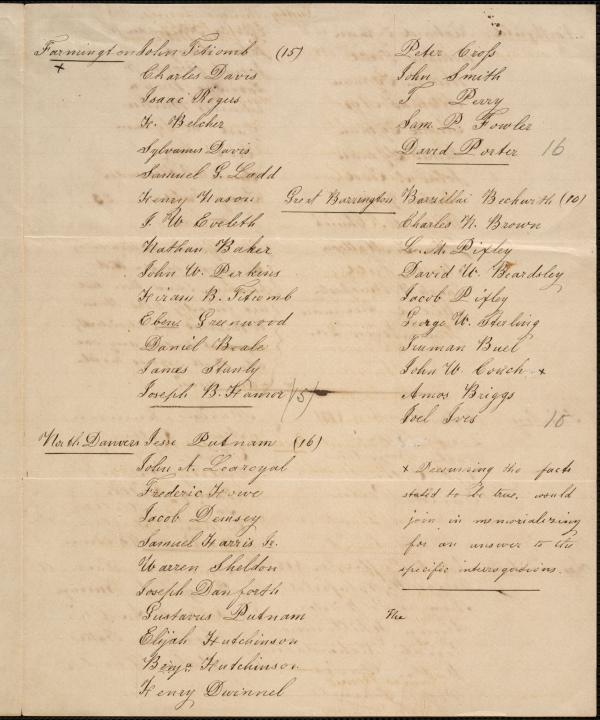 Farmington John Titcomb (15)
x
Charles Davis
Isaac Rogers
H. Belcher
Sylvanus Davis
Samuel G. Ladd
Henry Nason
J. W. Eveleth
Nathan Baker
John W. Perkins
Hiram B. Titcomb
Ebenr Greenwood
Daniel Beale
James Stanly
Joseph B. Hamor (15)
North Danvers Jesse Putnam (16)
John A. Learoyd
Frederic Howe
Jacob Dempsey
Samuel Harris Jr.
Warren Shelton
Joseph Danforth
Gustavus Putnam
Elijah Hutchinson
Benjn Hutchinson
Henry Dwinnel
Peter Cross
John Smith
T Perry
Sam. P. Fowler
David Porter 16
Great Barrington Barzillai (10)
Charles N. Brown
L. M. Pixley
David W. Beardsley
Jacob Pixley
George W. Sterling
Truman Buel
John W. Couch x
Amos Briggs
Joel Ives 10
x the facts
stated to be true, would
join in memorializing
for an answer to the
specific interrogations.
The